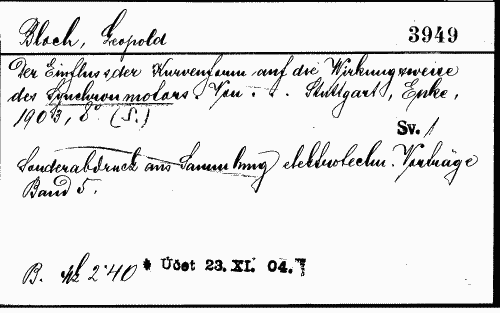 Bloch, Leopold 3949
Der Einfluss der Kurvenform auf die Wirkungsweise
des Synchronmotors. Von . . . Stuttgart, Enke,
1903, 8° (S.)
Sv. 1
Sonderabdruck aus Sammlung elektrotechn. Vorträge
Band 5.
B. Mk 2·40 * Účet 23. XI. 04.